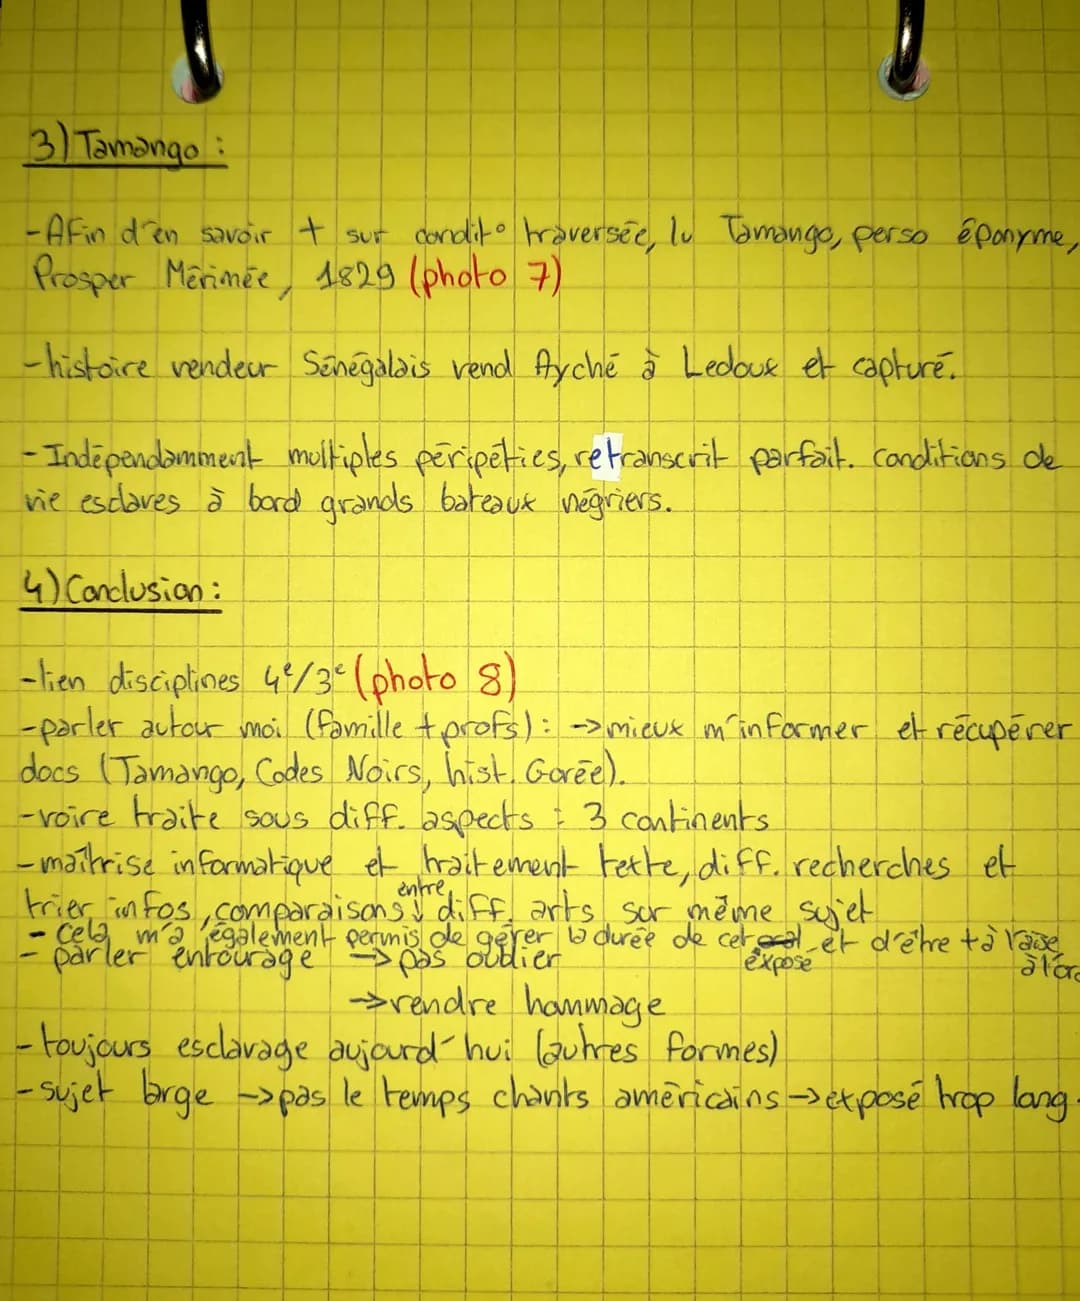 3) Tamango :
-Afin d'en savoir + sur condit° traversée, lu Tamango, perso éponyme,
Prosper Mérimée, 1829 (photo 7)
-histoire vendeur Sénégalais vend Ayché à Ledoux et capturé.
-Indépendamment multiples péripéties, retranscrit parfait. conditions de
vie esclaves à bord grands bateaux négriers.
4) Conclusion :
-lien disciplines 4e/3e (photo 8)
-parler autour moi (famille + profs) : ->mieux m'informer et récupérer
docs (Tamango, Codes Noirs, hist. Gorée).
-voire traite sous diff. aspects : 3 continents
-maîtrise informatique et traitement texte, diff. recherches et
entre
trier infos, comparaisons ↓ diff. arts sur même sujet
- Cela m'a également permis de gérer la durée de cet oral et d'être + à l'aise
exposé à l'ora
- parler entourage -> pas oublier
->rendre hommage
-toujours esclavage aujourd'hui (autres formes)
-sujet large ->pas le temps chants américains ->exposé trop long.